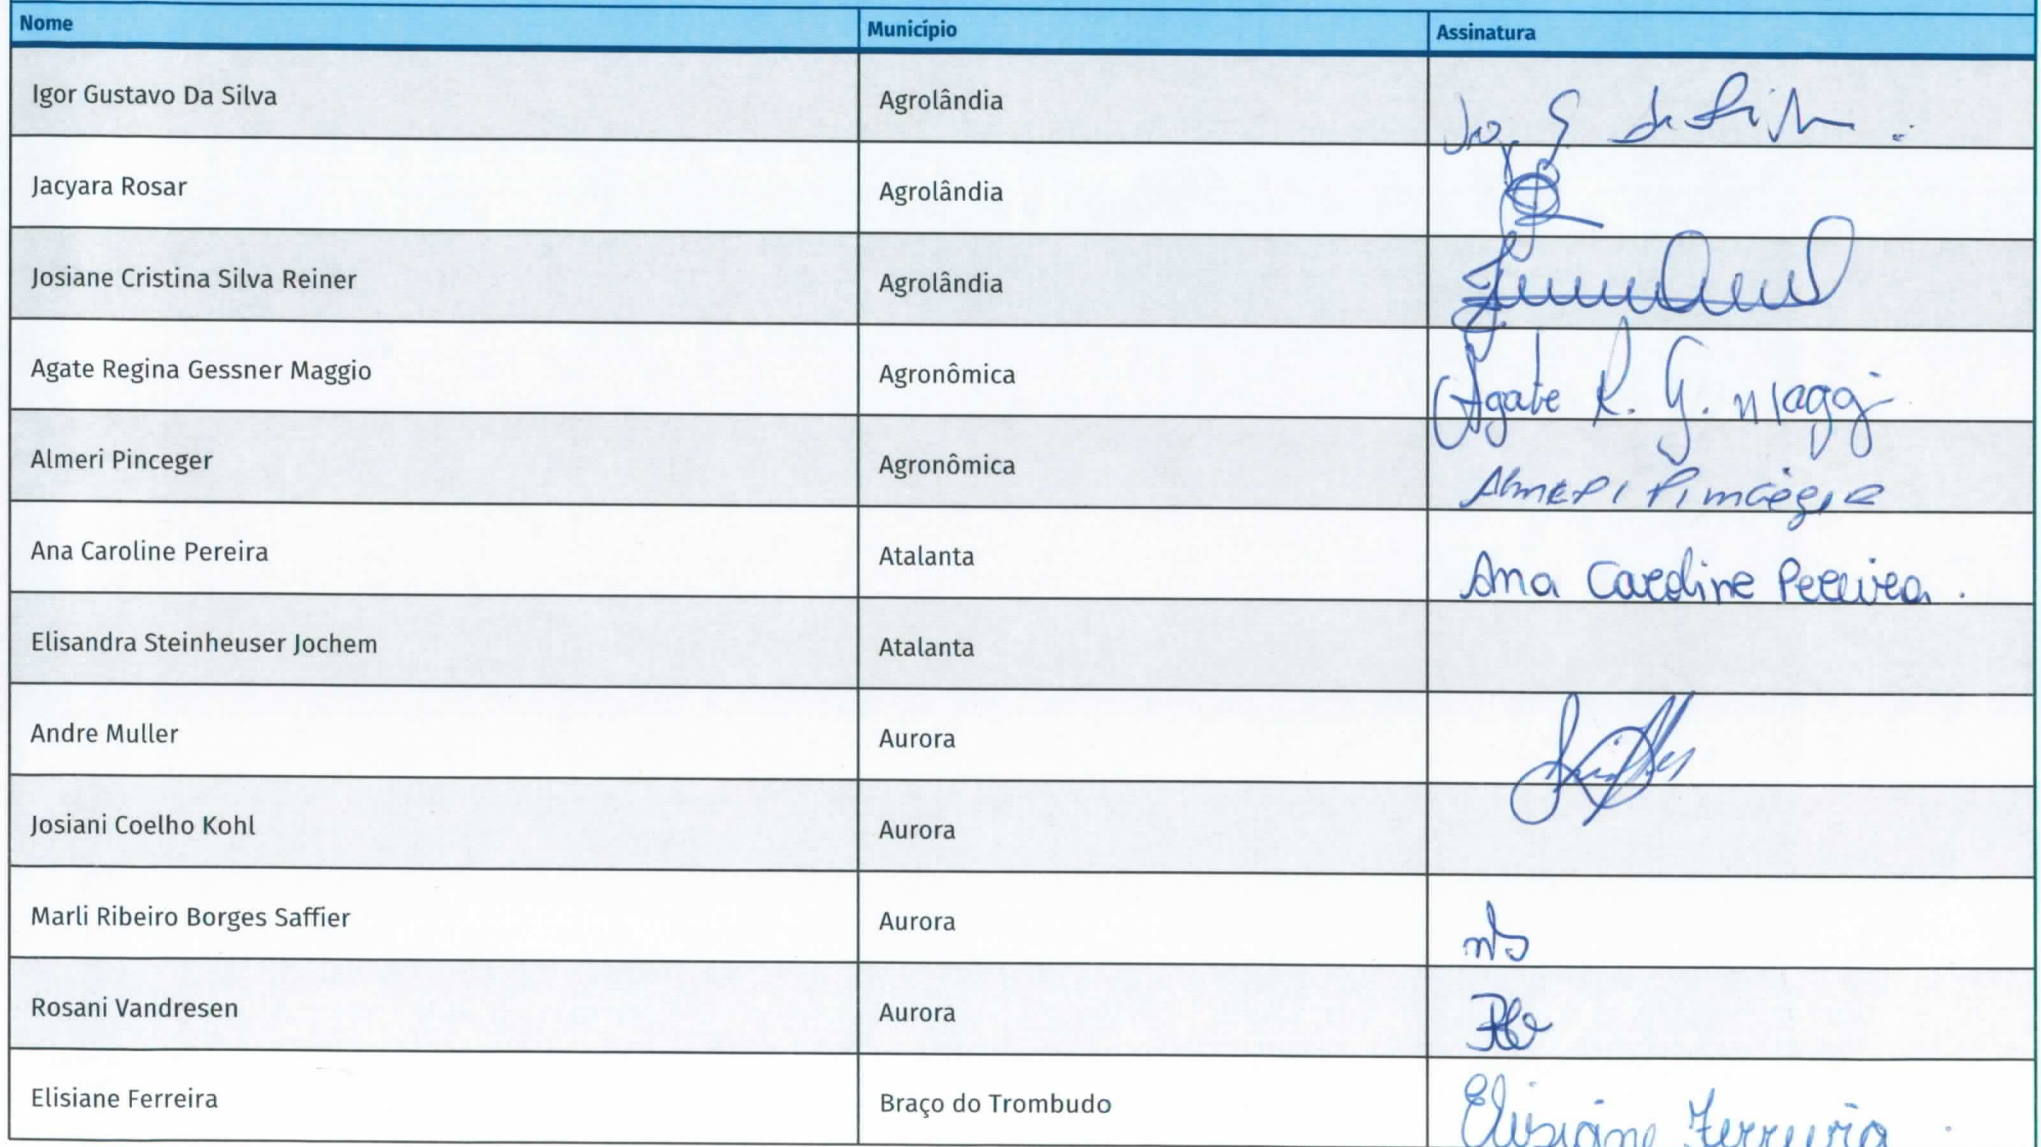 Nome Município Assinatura
Igor Gustavo Da Silva Agrolândia
Jacyara Rosar Agrolândia
Josiane Cristina Silva Reiner Agrolândia
Agate Regina Gessner Maggio Agronômica Agate R. G. Maggi
Almeri Pinceger Agronômica
Ana Caroline Pereira Atalanta Ana Caroline Pereira.
Elisandra Steinheuser Jochem Atalanta
Andre Muller Aurora
Josiani Coelho Kohl Aurora
Marli Ribeiro Borges Saffier Aurora
Rosani Vandresen Aurora
Elisiane Ferreira Braço do Trombudo Elisiane Ferreira